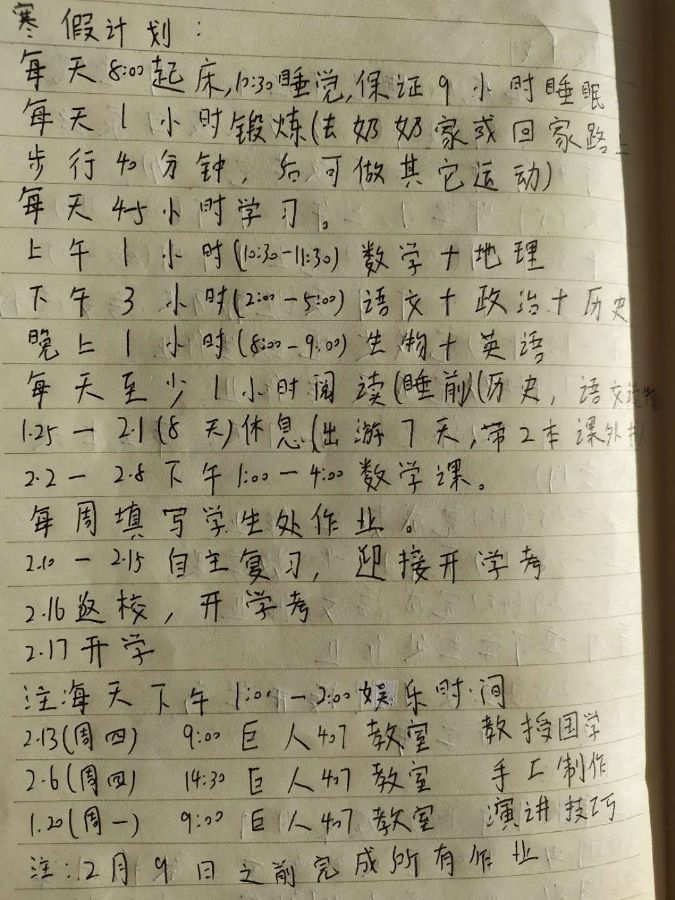 寒假计划:
每天8:00起床,10:30睡觉,保证9小时睡眠
每天1小时锻炼(去奶奶家或回家路上
步行40分钟,后可做其它运动)
每天4-5小时学习。
上午1小时(10:30-11:30)数学+地理
下午3小时(2:00-5:00)语文+政治+历史
晚上1小时(8:00-9:00)生物+英语
每天至少1小时阅读(睡前)(历史,语文读物
1.25-2.1(8天)休息(出游7天,带2本课外书
2.2-2.8下午1:00-4:00数学课。
每周填写学生处作业。
2.10-2.15自主复习,迎接开学考
2.16返校,开学考
2.17开学
注:每天下午1:00-2:00娱乐时间
2.13(周四) 9:00 巨人407教室 教授国学
2.6(周四) 14:30 巨人407教室 手工制作
1.20(周一) 9:00 巨人407教室 演讲技巧
注:2月9日之前完成所有作业